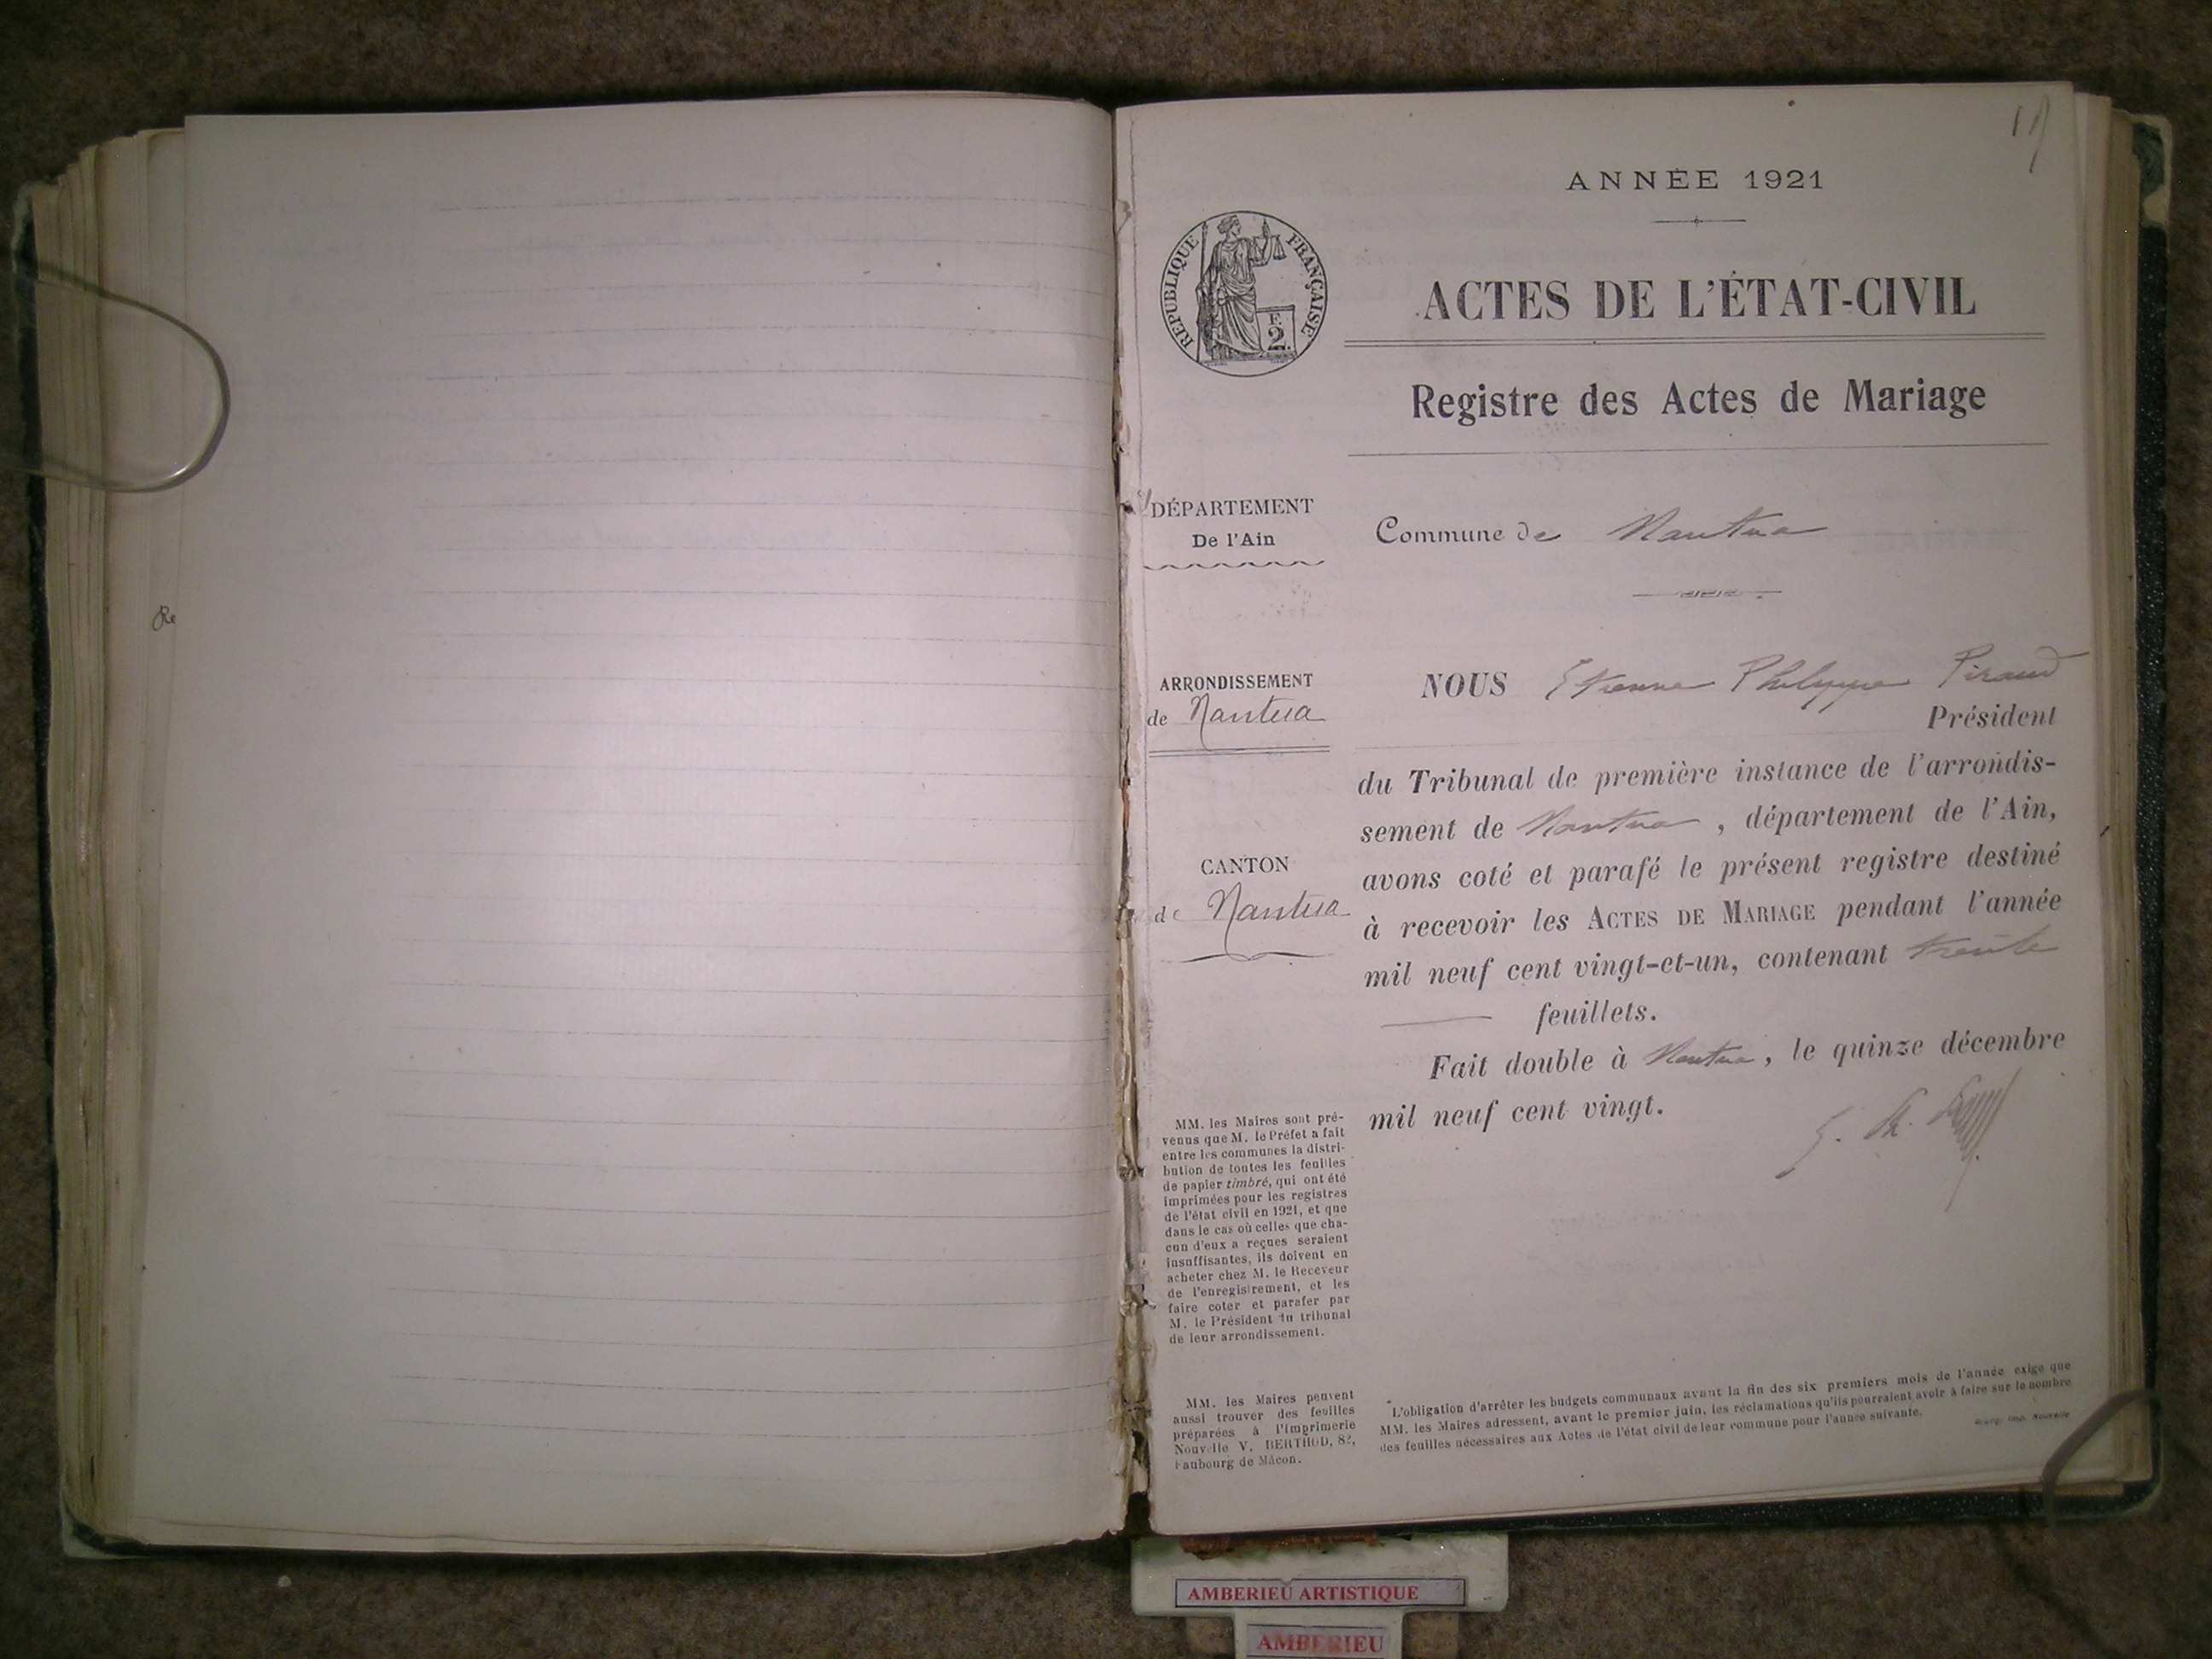 Re
ANNÉE 1921
RÉPUBLIQUE FRANÇAISE
F. 2.
ACTES DE L'ÉTAT-CIVIL
Registre des Actes de Mariage
DÉPARTEMENT
De l'Ain
Commune de Nantua
ARRONDISSEMENT
de Nantua
CANTON
de Nantua
MM. les Maires sont pré-
venus que M. le Préfet a fait
entre les communes la distri-
bution de toutes les feuilles
de papier timbré, qui ont été
imprimées pour les registres
de l'état civil en 1921, et que
dans le cas où celles que cha-
cun d'eux a reçues seraient
insuffisantes, ils doivent en
acheter chez M. le Receveur
de l'enregistrement, et les
faire coter et parafer par
M. le Président du tribunal
de leur arrondissement.
MM. les Maires peuvent
aussi trouver des feuilles
préparées à l'Imprimerie
Nouvelle V. BERTHOD, 82,
Faubourg de Mâcon.
NOUS Etienne Philippe Piraud
Président
du Tribunal de première instance de l'arrondis-
sement de Nantua, département de l'Ain,
avons coté et parafé le présent registre destiné
à recevoir les ACTES DE MARIAGE pendant l'année
mil neuf cent vingt-et-un, contenant trente
feuillets.
Fait double à Nantua, le quinze décembre
mil neuf cent vingt.
L'obligation d'arrêter les budgets communaux avant la fin des six premiers mois de l'année exige que
MM. les Maires adressent, avant le premier juin, les réclamations qu'ils pourraient avoir à faire sur le nombre
des feuilles nécessaires aux Actes de l'état civil de leur commune pour l'année suivante.
Bourg, Imp. Nouvelle
AMBERIEU ARTISTIQUE
AMBERIEU